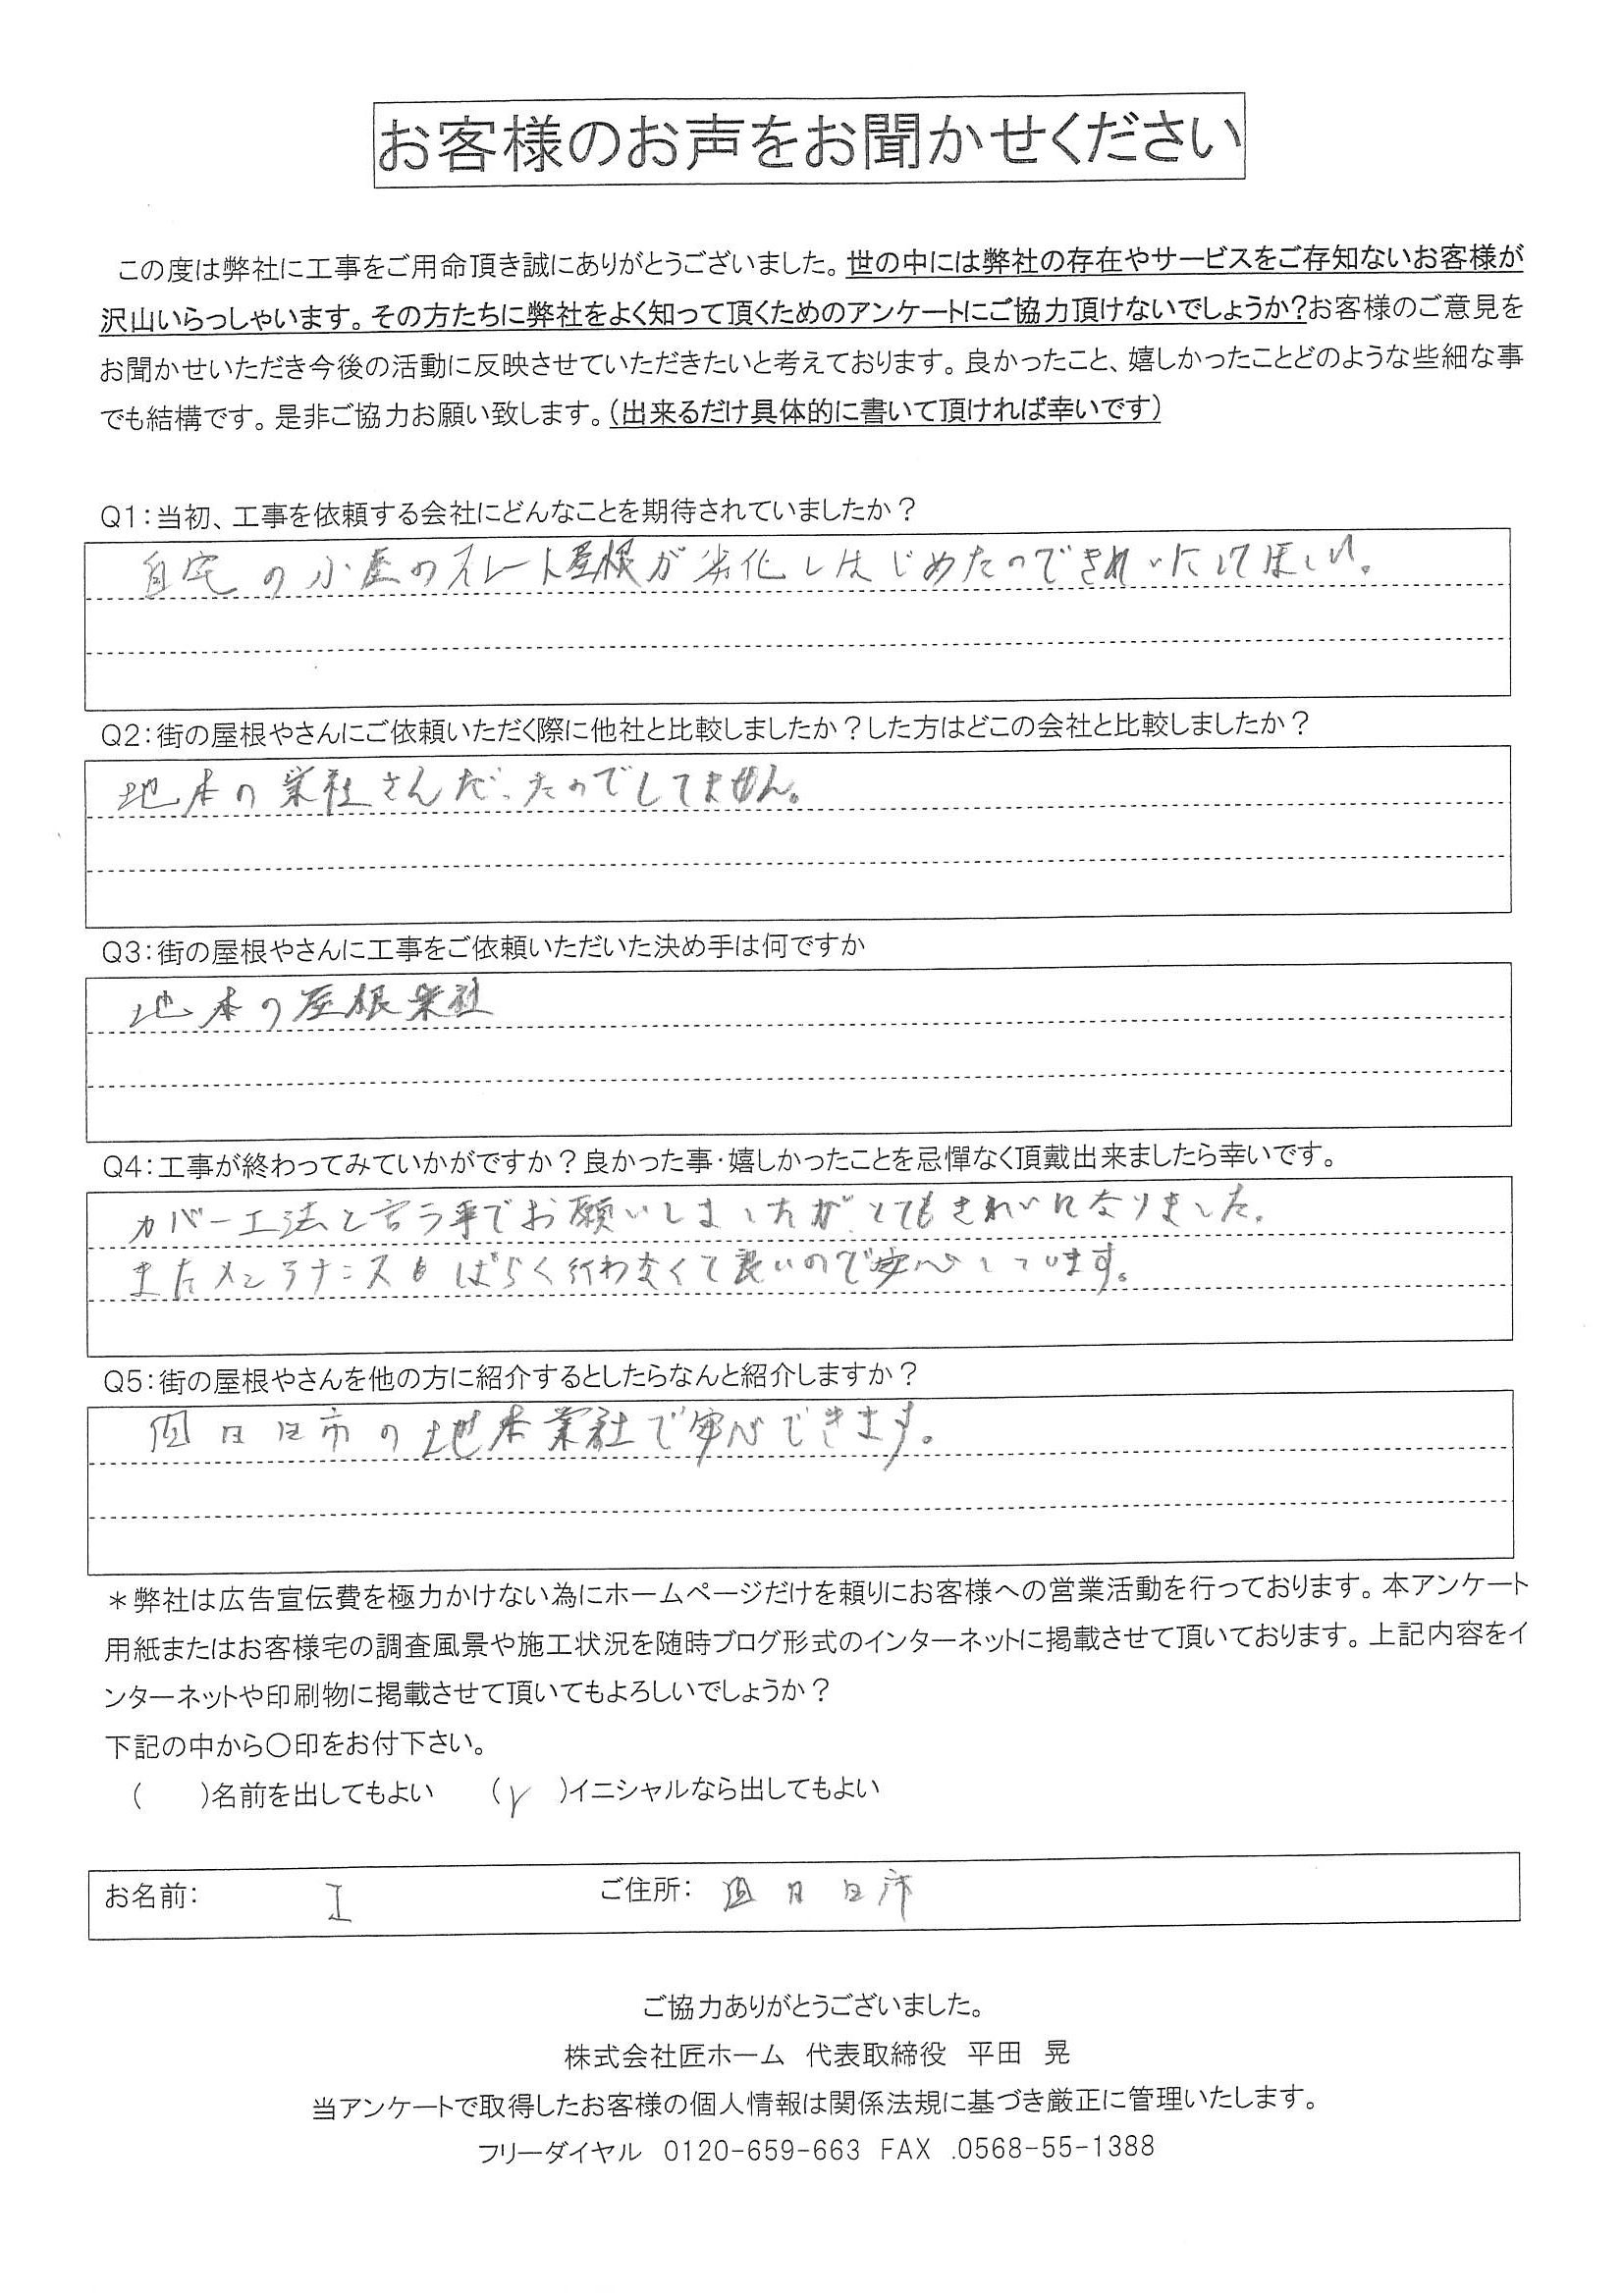 お客様のお声をお聞かせください
この度は弊社に工事をご用命頂き誠にありがとうございました。世の中には弊社の存在やサービスをご存知ないお客様が
沢山いらっしゃいます。その方たちに弊社をよく知って頂くためのアンケートにご協力頂けないでしょうか?お客様のご意見を
お聞かせいただき今後の活動に反映させていただきたいと考えております。良かったこと、嬉しかったことどのような些細な事
でも結構です。是非ご協力お願い致します。(出来るだけ具体的に書いて頂ければ幸いです)
Q1:当初、工事を依頼する会社にどんなことを期待されていましたか?
自宅の小屋のスレート屋根が劣化しはじめたのできれいにしてほしい。
Q2:街の屋根やさんにご依頼いただく際に他社と比較しましたか?した方はどこの会社と比較しましたか?
地本の業社さんだったのでしてません。
Q3:街の屋根やさんに工事をご依頼いただいた決め手は何ですか
地本の屋根業社
Q4:工事が終わってみていかがですか?良かった事・嬉しかったことを忌憚なく頂戴出来ましたら幸いです。
カバー工法と言う事でお願いしましたが、とてもきれいになりました。
またメンテナンスもしばらく行わなくて良いので安心しています。
Q5:街の屋根やさんを他の方に紹介するとしたらなんと紹介しますか?
四日日市の地本業社で安心できます。
*弊社は広告宣伝費を極力かけない為にホームページだけを頼りにお客様への営業活動を行っております。本アンケート
用紙またはお客様宅の調査風景や施工状況を随時ブログ形式のインターネットに掲載させて頂いております。上記内容をイ
ンターネットや印刷物に掲載させて頂いてもよろしいでしょうか?
下記の中から〇印をお付下さい。
( )名前を出してもよい (✓)イニシャルなら出してもよい
お名前: I ご住所: 四日日市
ご協力ありがとうございました。
株式会社匠ホーム 代表取締役 平田 晃
当アンケートで取得したお客様の個人情報は関係法規に基づき厳正に管理いたします。
フリーダイヤル 0120-659-663 FAX .0568-55-1388